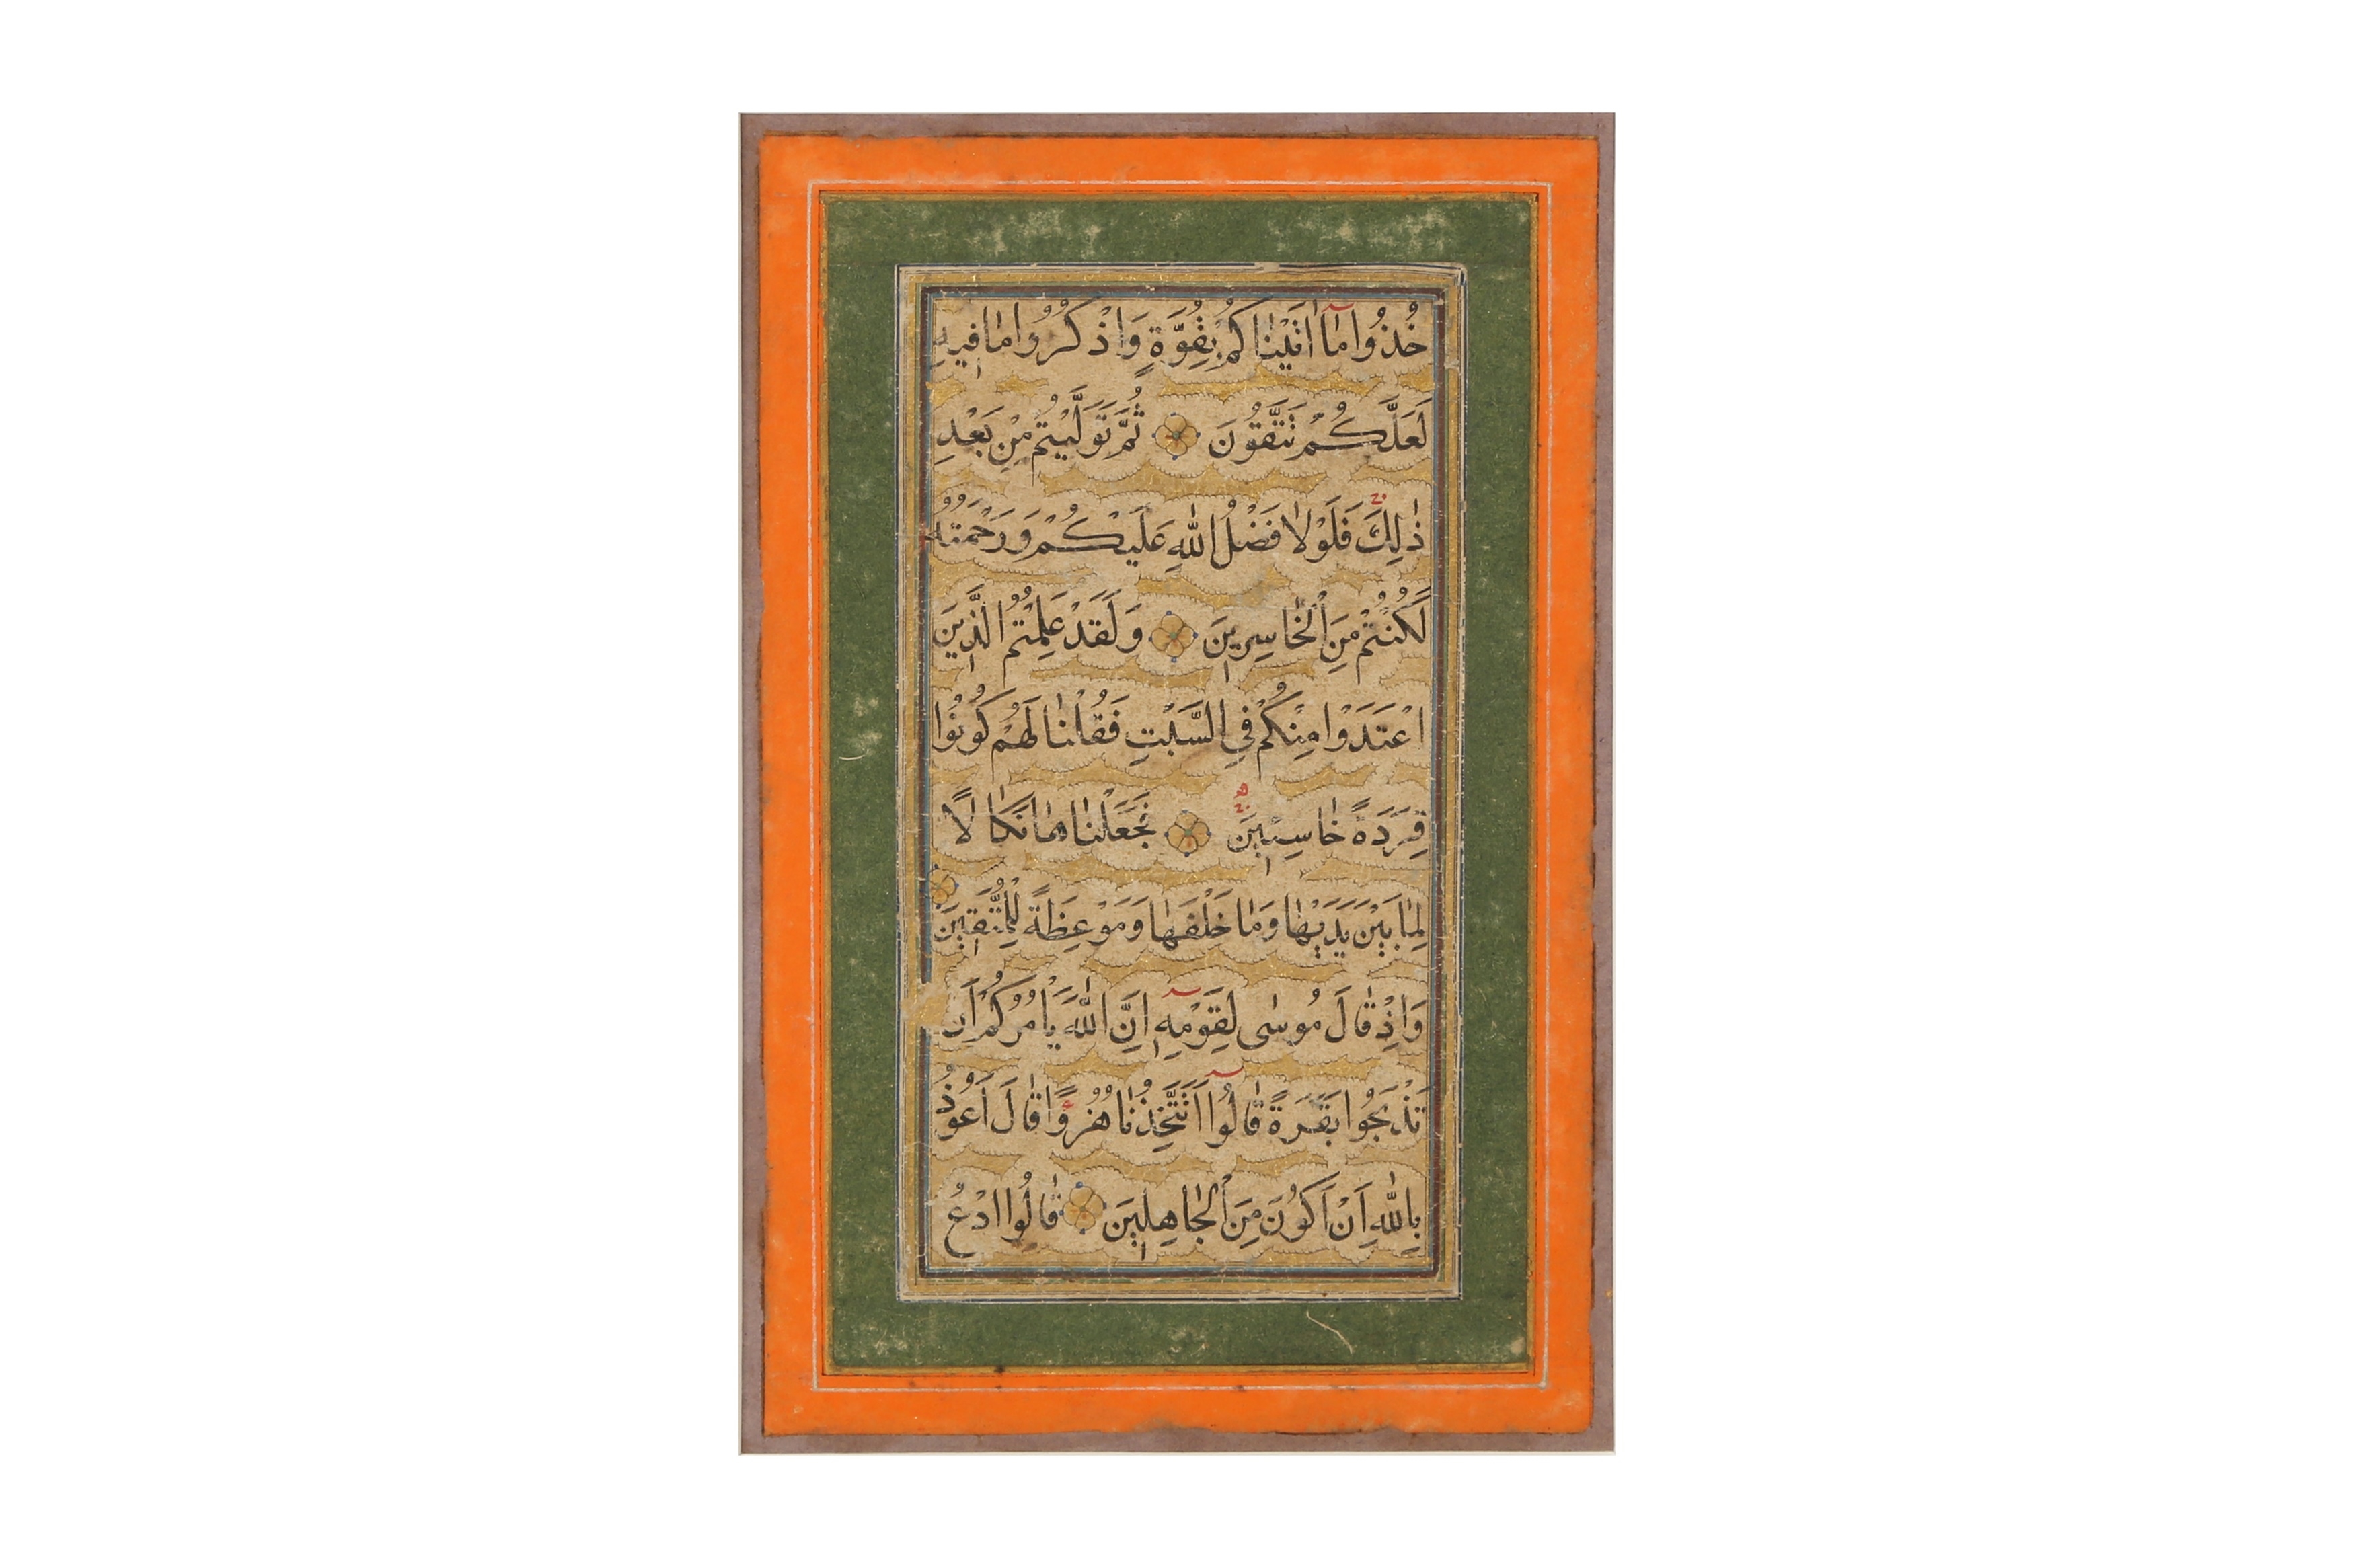 خُذُوا مَآ اٰتَيْنٰاكُمْ بِقُوَّةٍ وَاذْكُرُوا مٰا فِيهِ
لَعَلَّكُمْ تَتَّقُونَ ثُمَّ تَوَلَّيْتُمْ مِنْ بَعْدِ
ذٰلِكَ فَلَوْلٰا فَضْلُ اللّٰهِ عَلَيْكُمْ وَرَحْمَتُهُ
لَكُنْتُمْ مِنَ الْخٰاسِرِينَ وَلَقَدْ عَلِمْتُمُ الَّذِينَ
اعْتَدَوْا مِنْكُمْ فِي السَّبْتِ فَقُلْنٰا لَهُمْ كُونُوا
قِرَدَةً خٰاسِئِينَ فَجَعَلْنٰاهٰا نَكٰالًا
لِمٰا بَيْنَ يَدَيْهٰا وَمٰا خَلْفَهٰا وَمَوْعِظَةً لِلْمُتَّقِينَ
وَاِذْ قٰالَ مُوسٰى لِقَوْمِهِ اِنَّ اللّٰهَ يَاْمُرُكُمْ اَنْ
تَذْبَحُوا بَقَرَةً قٰالُوا اَتَتَّخِذُنٰا هُزُوًا قٰالَ اَعُوذُ
بِاللّٰهِ اَنْ اَكُونَ مِنَ الْجٰاهِلِينَ قٰالُوا ادْعُ